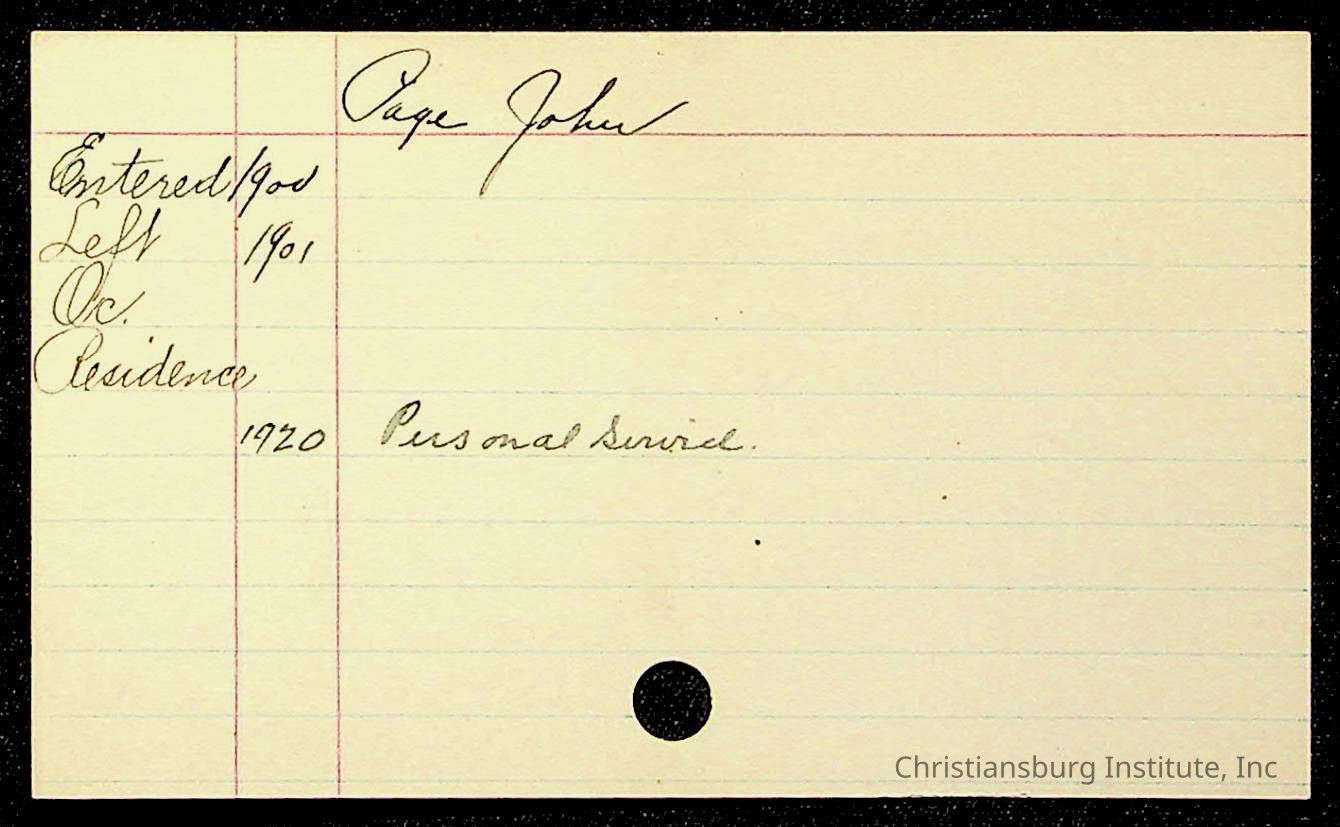 Page John
Entered 1900
Left 1901
Oc.
Residence
1920 Personal Service.
Christiansburg Institute, Inc